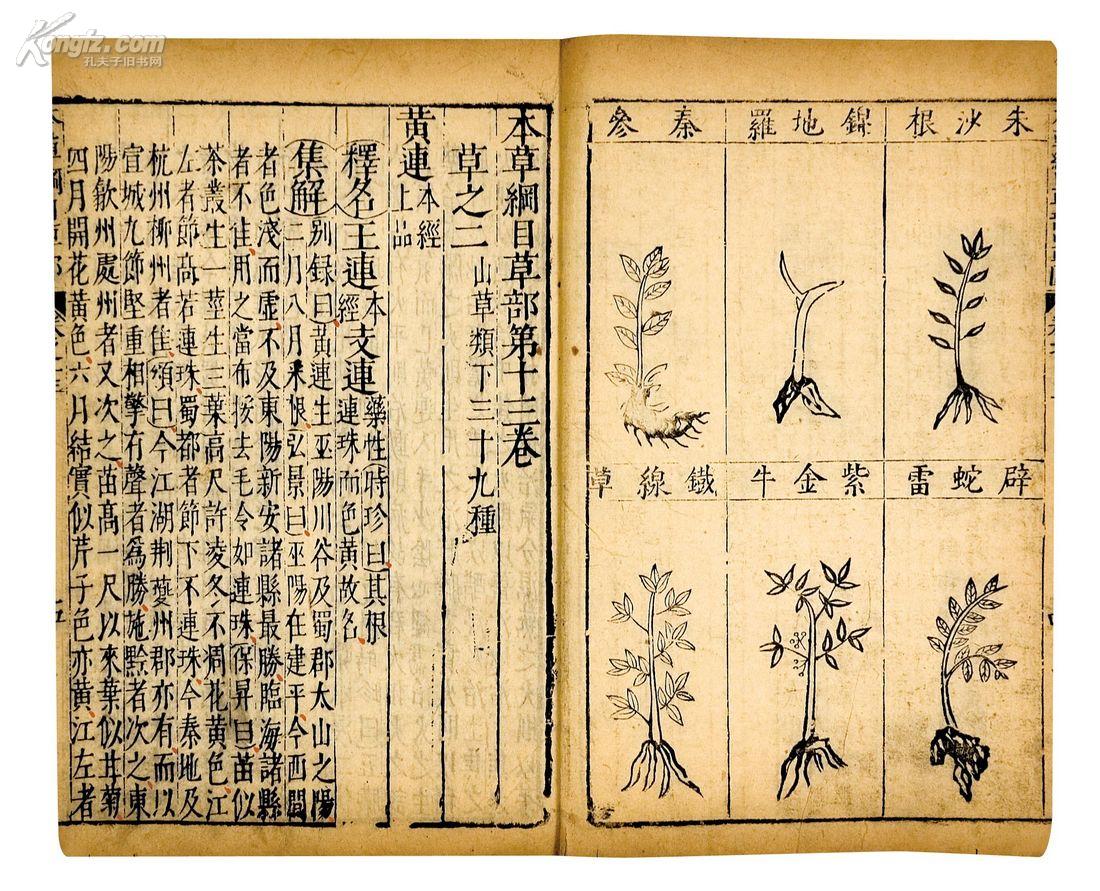 朱沙根
錦地羅
秦參
辟蛇雷
紫金牛
鐵線草
本草綱目草部第十三卷
草之二 山草類下三十九種
黃連 本經上品
釋名 王連 本經 支連 藥性 時珍曰其根連珠而色黃故名
集解 別録曰黃連生巫陽川谷及蜀郡太山之陽
二月八月采根弘景曰巫陽在建平今西間
者色淺而虛不及東陽新安諸縣最勝臨海諸縣
者不佳用之當布挼去毛令如連珠保昇曰苗似
茶叢生一莖生三葉高尺許凌冬不凋花黃色江
左者節高若連珠蜀都者節下不連珠今秦地及
杭州柳州者佳頌曰今江湖荊夔州郡亦有而以
宣城九節堅重相擊有聲者爲勝施黔者次之東
陽歙州處州者又次之苗高一尺以來葉似甘菊
四月開花黃色六月結實似芹子色亦黃江左者
Kongfz.com
孔夫子旧书网